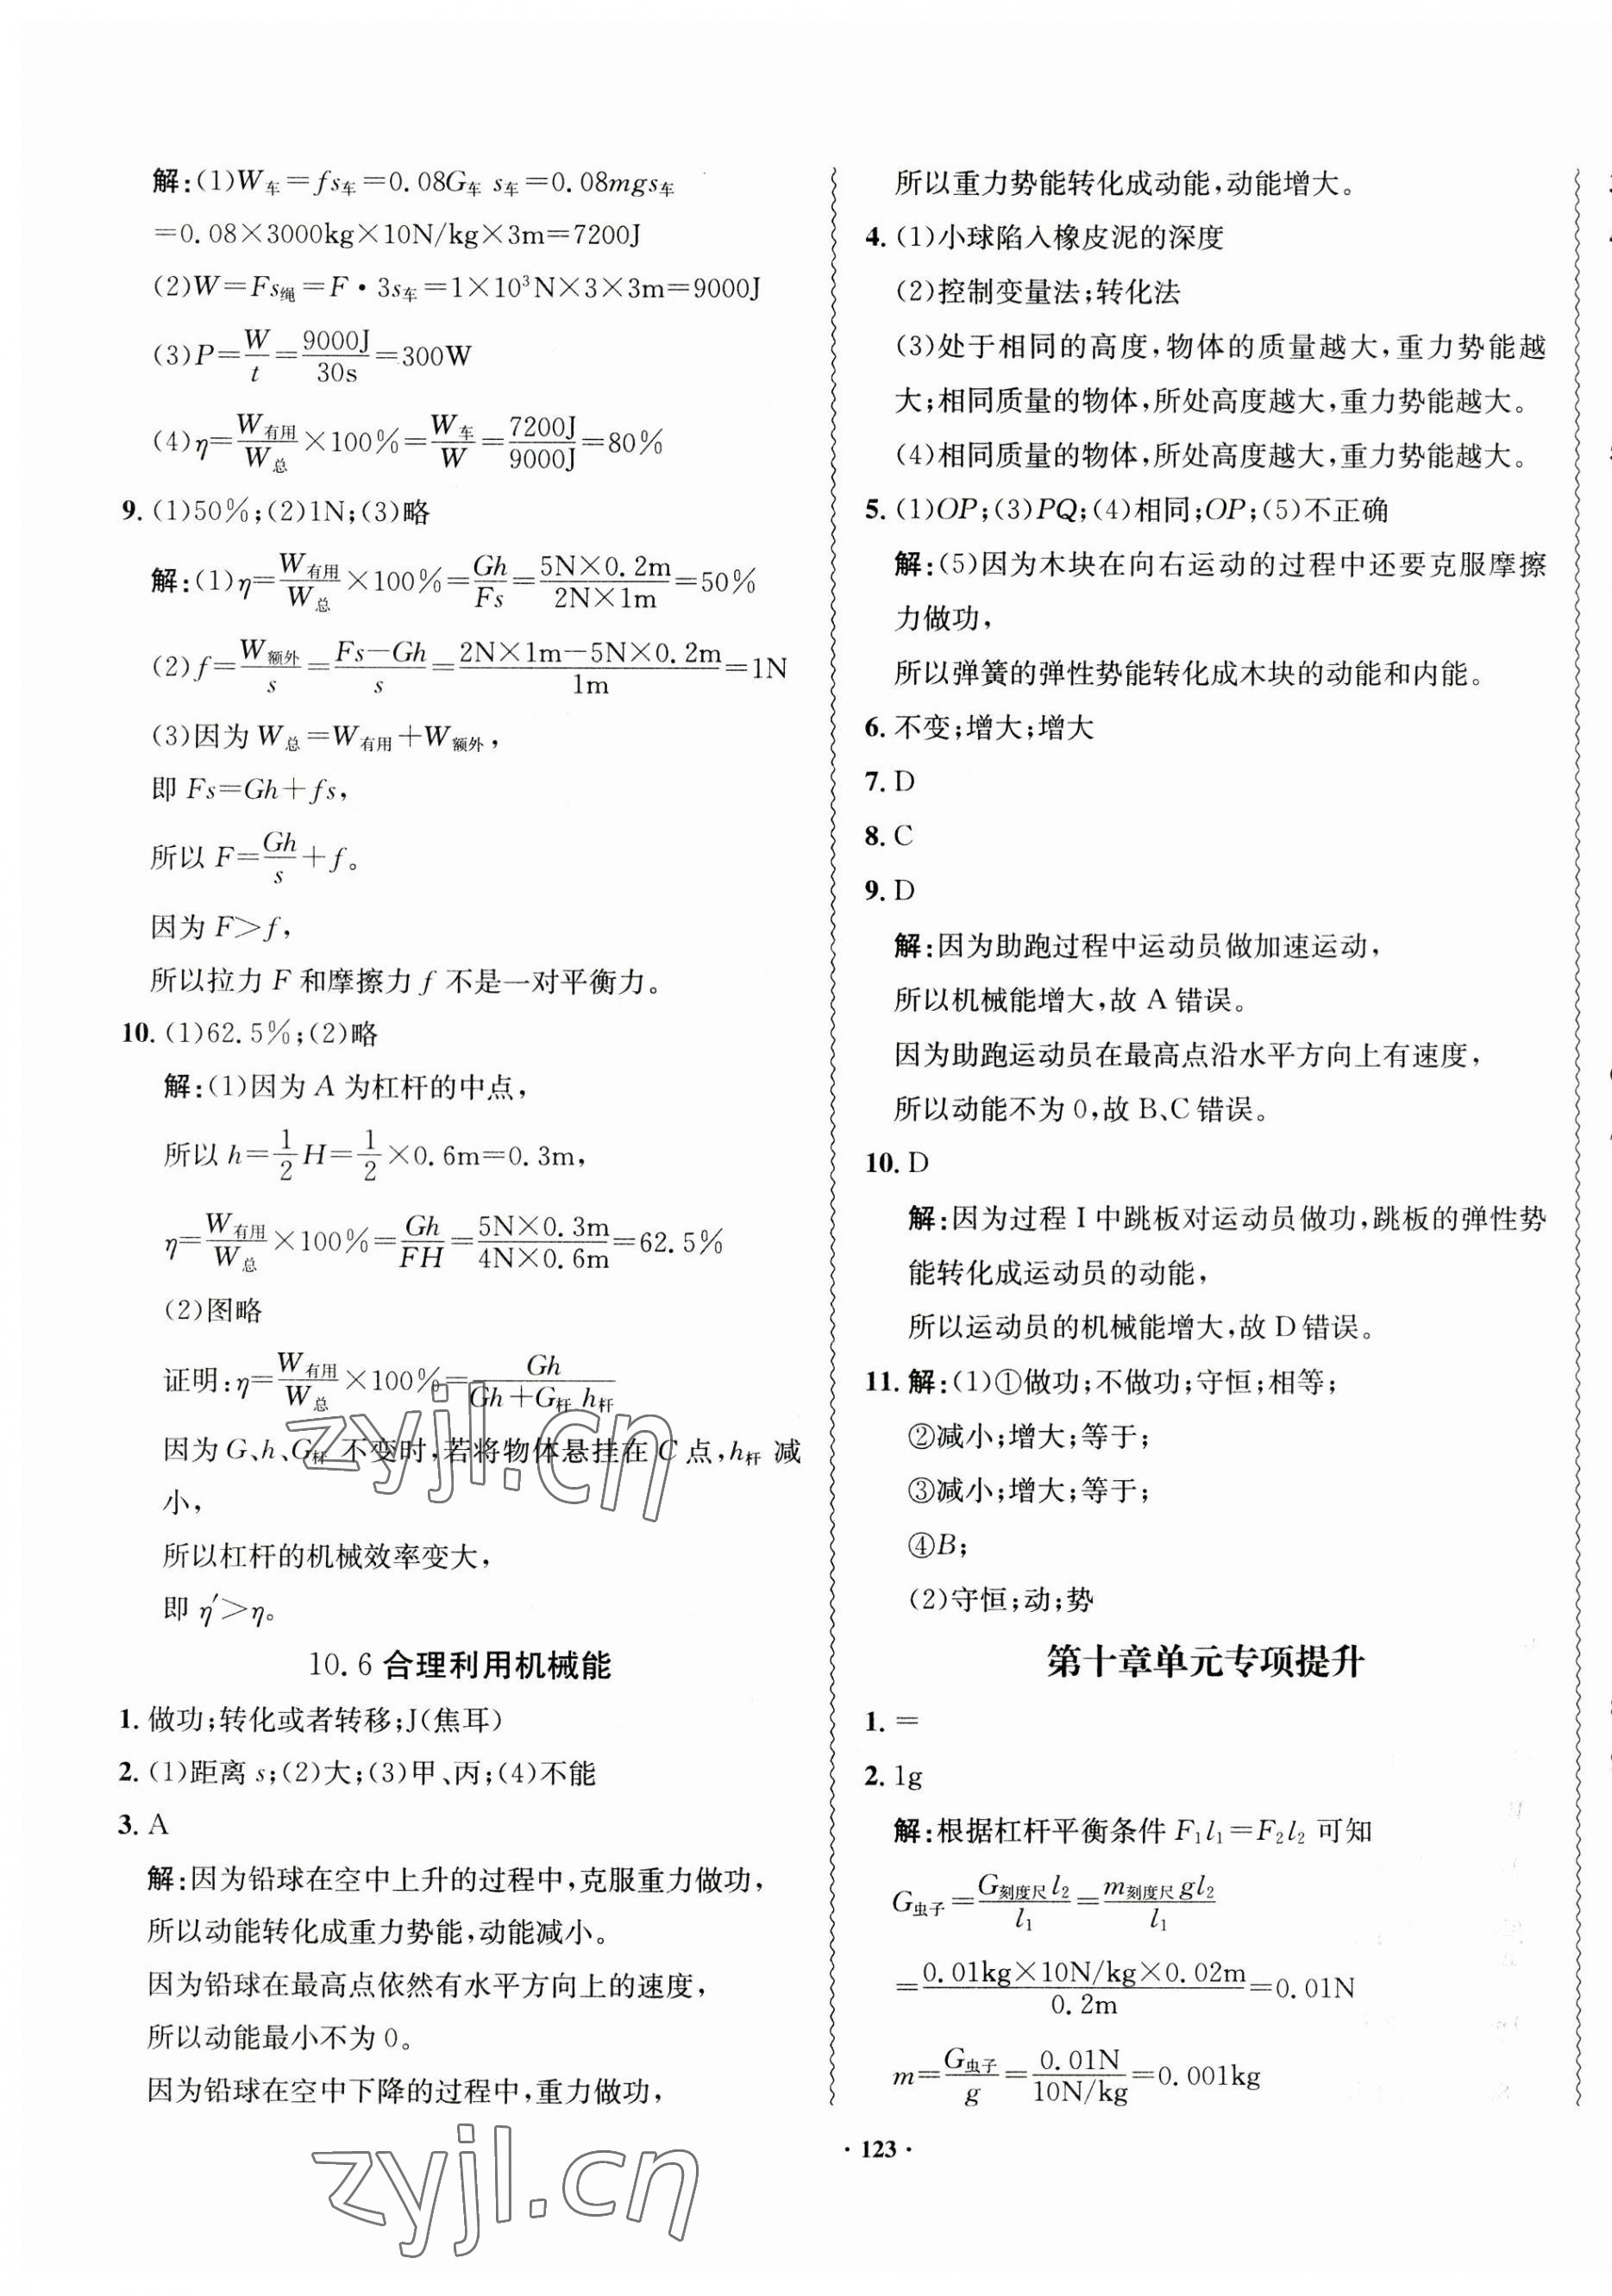 解:(1)W车=fs车=0.08G车 s车=0.08mgs车
=0.08×3000kg×10N/kg×3m=7200J
(2)W=Fs绳=F·3s车=1×10³N×3×3m=9000J
(3)P=W/t=9000J/30s=300W
(4)η=W有用/W总×100%=W车/W=7200J/9000J=80%
9. (1)50%;(2)1N;(3)略
解:(1)η=W有用/W总×100%=Gh/Fs=5N×0.2m/2N×1m=50%
(2)f=W额外/s=Fs-Gh/s=2N×1m-5N×0.2m/1m=1N
(3)因为W总=W有用+W额外,
即 Fs=Gh+fs,
所以 F=Gh/s+f。
因为 F>f,
所以拉力 F 和摩擦力 f 不是一对平衡力。
10. (1)62.5%;(2)略
解:(1)因为 A 为杠杆的中点,
所以 h=1/2H=1/2×0.6m=0.3m,
η=W有用/W总×100%=Gh/FH=5N×0.3m/4N×0.6m=62.5%
(2)图略
证明:η=W有用/W总×100%=Gh/Gh+G杆h杆
因为 G、h、G杆 不变时,若将物体悬挂在 C 点,h杆 减
小,
所以杠杆的机械效率变大,
即 η′>η。
10.6 合理利用机械能
1. 做功;转化或者转移;J(焦耳)
2. (1)距离 s;(2)大;(3)甲、丙;(4)不能
3. A
解:因为铅球在空中上升的过程中,克服重力做功,
所以动能转化成重力势能,动能减小。
因为铅球在最高点依然有水平方向上的速度,
所以动能最小不为 0。
因为铅球在空中下降的过程中,重力做功,
所以重力势能转化成动能,动能增大。
4. (1)小球陷入橡皮泥的深度
(2)控制变量法;转化法
(3)处于相同的高度,物体的质量越大,重力势能越
大;相同质量的物体,所处高度越大,重力势能越大。
(4)相同质量的物体,所处高度越大,重力势能越大。
5. (1)OP;(3)PQ;(4)相同;OP;(5)不正确
解:(5)因为木块在向右运动的过程中还要克服摩擦
力做功,
所以弹簧的弹性势能转化成木块的动能和内能。
6. 不变;增大;增大
7. D
8. C
9. D
解:因为助跑过程中运动员做加速运动,
所以机械能增大,故 A 错误。
因为助跑运动员在最高点沿水平方向上有速度,
所以动能不为 0,故 B、C 错误。
10. D
解:因为过程 I 中跳板对运动员做功,跳板的弹性势
能转化成运动员的动能,
所以运动员的机械能增大,故 D 错误。
11. 解:(1)①做功;不做功;守恒;相等;
②减小;增大;等于;
③减小;增大;等于;
④B;
(2)守恒;动;势
第十章单元专项提升
1. =
2. 1g
解:根据杠杆平衡条件 F₁l₁=F₂l₂ 可知
G虫子=G刻度尺l₂/l₁=m刻度尺gl₂/l₁
=0.01kg×10N/kg×0.02m/0.2m=0.01N
m=G虫子/g=0.01N/10N/kg=0.001kg
· 123 ·
zyjl.cn
zyjl.cn